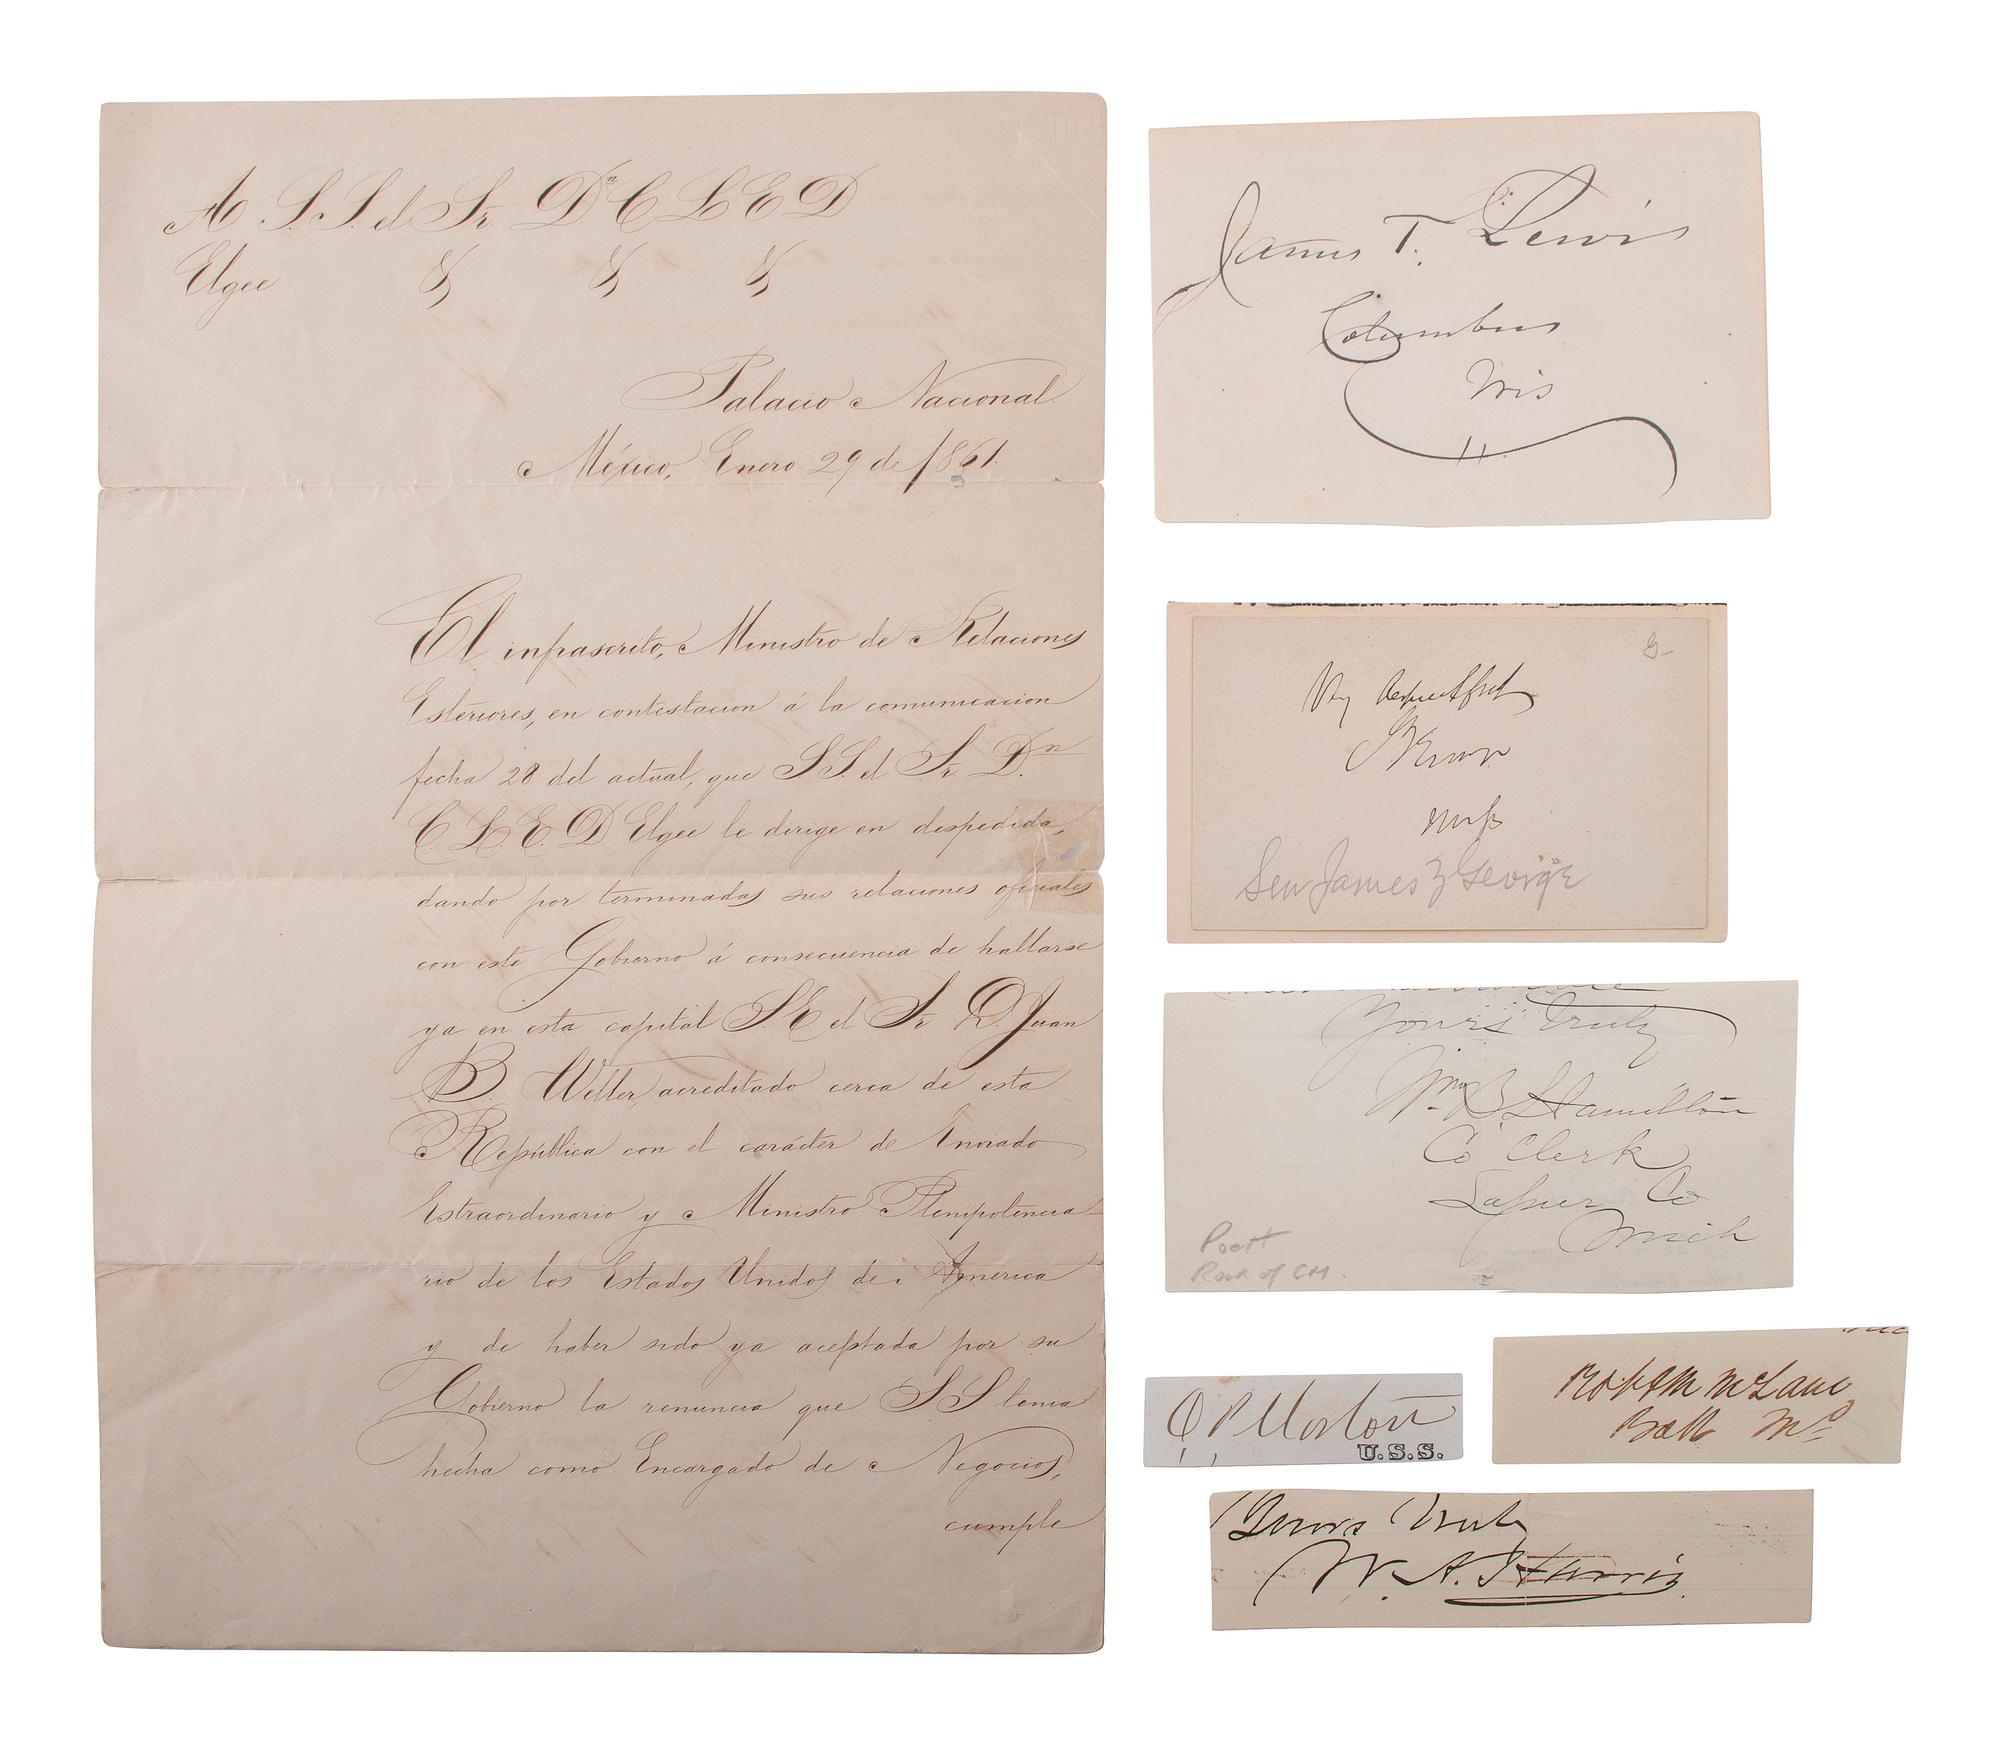 A S. S. el Sr. Dn C L E D
Elgee & & &
Palacio Nacional
México, Enero 29 de 1861.
El infrascrito, Ministro de Relaciones
Esteriores, en contestacion á la comunicacion
fecha 28 del actual, que S S. el Sr. Dn
C L E. D Elgee le dirige en despedida,
dando por terminadas sus relaciones oficiales
con este Gobierno á consecuencia de hallarse
ya en esta capital S. E el Sr D. Juan
B. Weller, acreditado cerca de esta
República con el carácter de Enviado
Estraordinario y Ministro Plenipotencia
rio de los Estados Unidos de America
y de haber sido ya aceptada por su
Gobierno la renuncia que S S tenia
hecha como Encargado de Negocios,
cumple
James T. Lewis
Columbus
Wis
G
Very respectfully
Miss
Sen James Z George
Yours Truly
Wm B Hamilton
Co Clerk
Lapeer Co
Mich
O. P. Morton
U.S.S.
Robt M McLane
Balt Md
Yours Truly
W. A. Harris